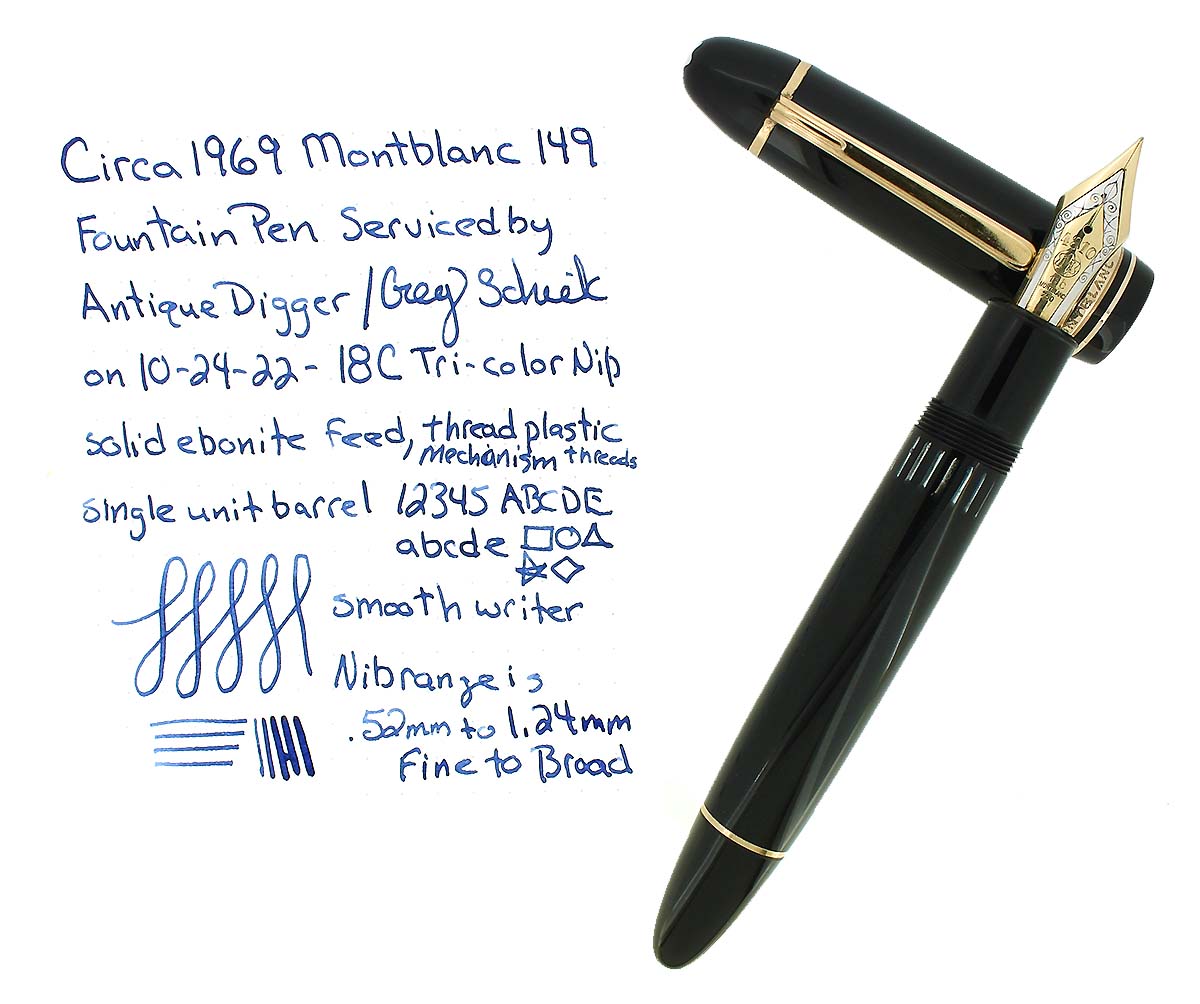 Circa 1969 Montblanc 149
Fountain Pen Serviced by
Antique Digger / Greg
on 10-24-22 - 18C Tri-color Nib
solid ebonite feed, thread plastic
mechanism threads
single unit barrel 12345 ABCDE
abcde
smooth writer
Nib range is
.52mm to 1.24mm
Fine to Broad